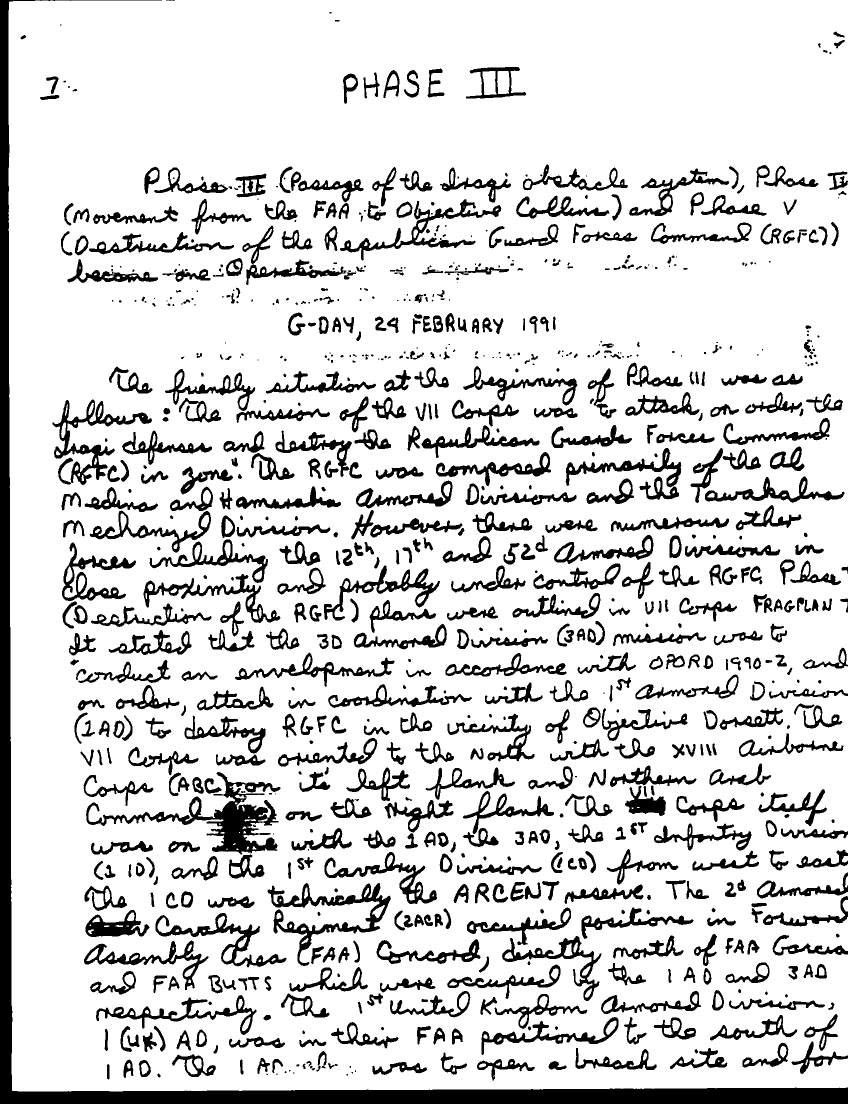 7
PHASE III
Phase III (Passage of the Iraqi obstacle system), Phase I
(Movement from the FAA to Objective Collins) and Phase V
(Destruction of the Republican Guard Forces Command (RGFC))
become one Operation
G-DAY, 24 FEBRUARY 1991
The friendly situation at the beginning of Phase III was as
follows: The mission of the VII Corps was "to attack, on order, the
Iraqi defenses and destroy the Republican Guards Forces Command
(RGFC) in zone". The RGFC was composed primarily of the Al
Medina and Hamurabia Armored Divisions and the Tawakalna
Mechanized Division. However, there were numerous other
forces including the 12th, 17th and 52d Armored Divisions in
close proximity and probably under control of the RGFC. Phase
(Destruction of the RGFC) plans were outlined in VII Corps FRAGPLAN 7
It stated that the 3D Armored Division (3AD) mission was to
"conduct an envelopment in accordance with OPORD 1990-2, and
on order, attack in coordination with the 1st Armored Division
(1AD) to destroy RGFC in the vicinity of Objective Dorsett. The
VII Corps was oriented to the North with the XVIII Airborne
Corps (ABC) on it's left flank and Northern Arab
Command on the right flank. The VII Corps itself
was on with the 1AD, the 3AD, the 1ST Infantry Division
(1 ID), and the 1st Cavalry Division (1CD) from west to east
The 1CD was technically the ARCENT reserve. The 2d Armored
Cavalry Regiment (2ACR) occupied positions in Forward
Assembly Area (FAA) Concord, directly north of FAA Garcia
and FAA BUTTS which were occupied by the 1AD and 3AD
respectively. The 1st United Kingdom Armored Division,
1 (UK) AD, was in their FAA positioned to the south of
1 AD. The 1 was to open a breach site and for